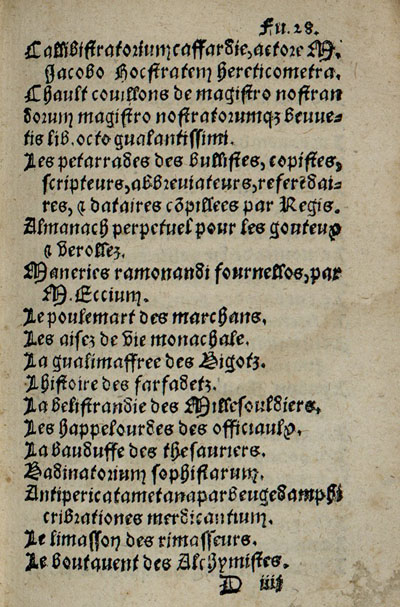 Fu. 28.
Callibistratorium caffardie, actore M.
Jacobo Hocstratem hereticometra.
Chault couillons de magistro nostran
dorum magistro nostratorumqꝫ beuue-
tis lib. octo gualantissimi.
Les petarrades des bullistes, copistes,
scripteurs, abbreviateurs, referēdai-
res, & dataires cōpillees par Regis.
Almanach perpetuel pour les gouteux
& verollez.
Maneries ramonandi fournellos, par
M. Eccium.
Le poulemart des marchans.
Les aisez de vie monachale.
La gualimaffree des Bigotz.
Lhistoire des farfadetz.
La belistrandie des Millesouldiers.
Les happelourdes des officiaulx.
La bauduffe des thesauriers.
Badinatorium sophistarum.
Antipericatametanaparbeugedamphi
cribrationes merdicantium.
Le limasson des rimasseurs.
Le boutauent des Alchymistes.
D iiij